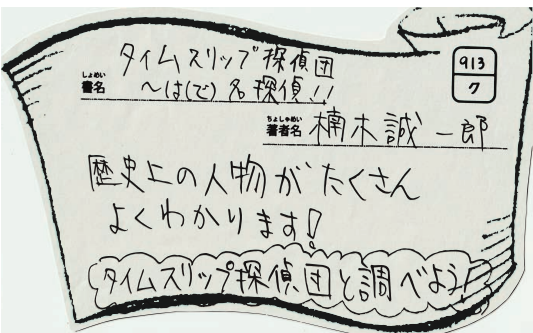 タイムスリップ探偵団
しょめい
書名 〜は(で)名探偵!!
913
ク
ちょしゃめい
著者名 楠木誠一郎
歴史上の人物がたくさん
よくわかります!
タイムスリップ探偵団と調べよう!